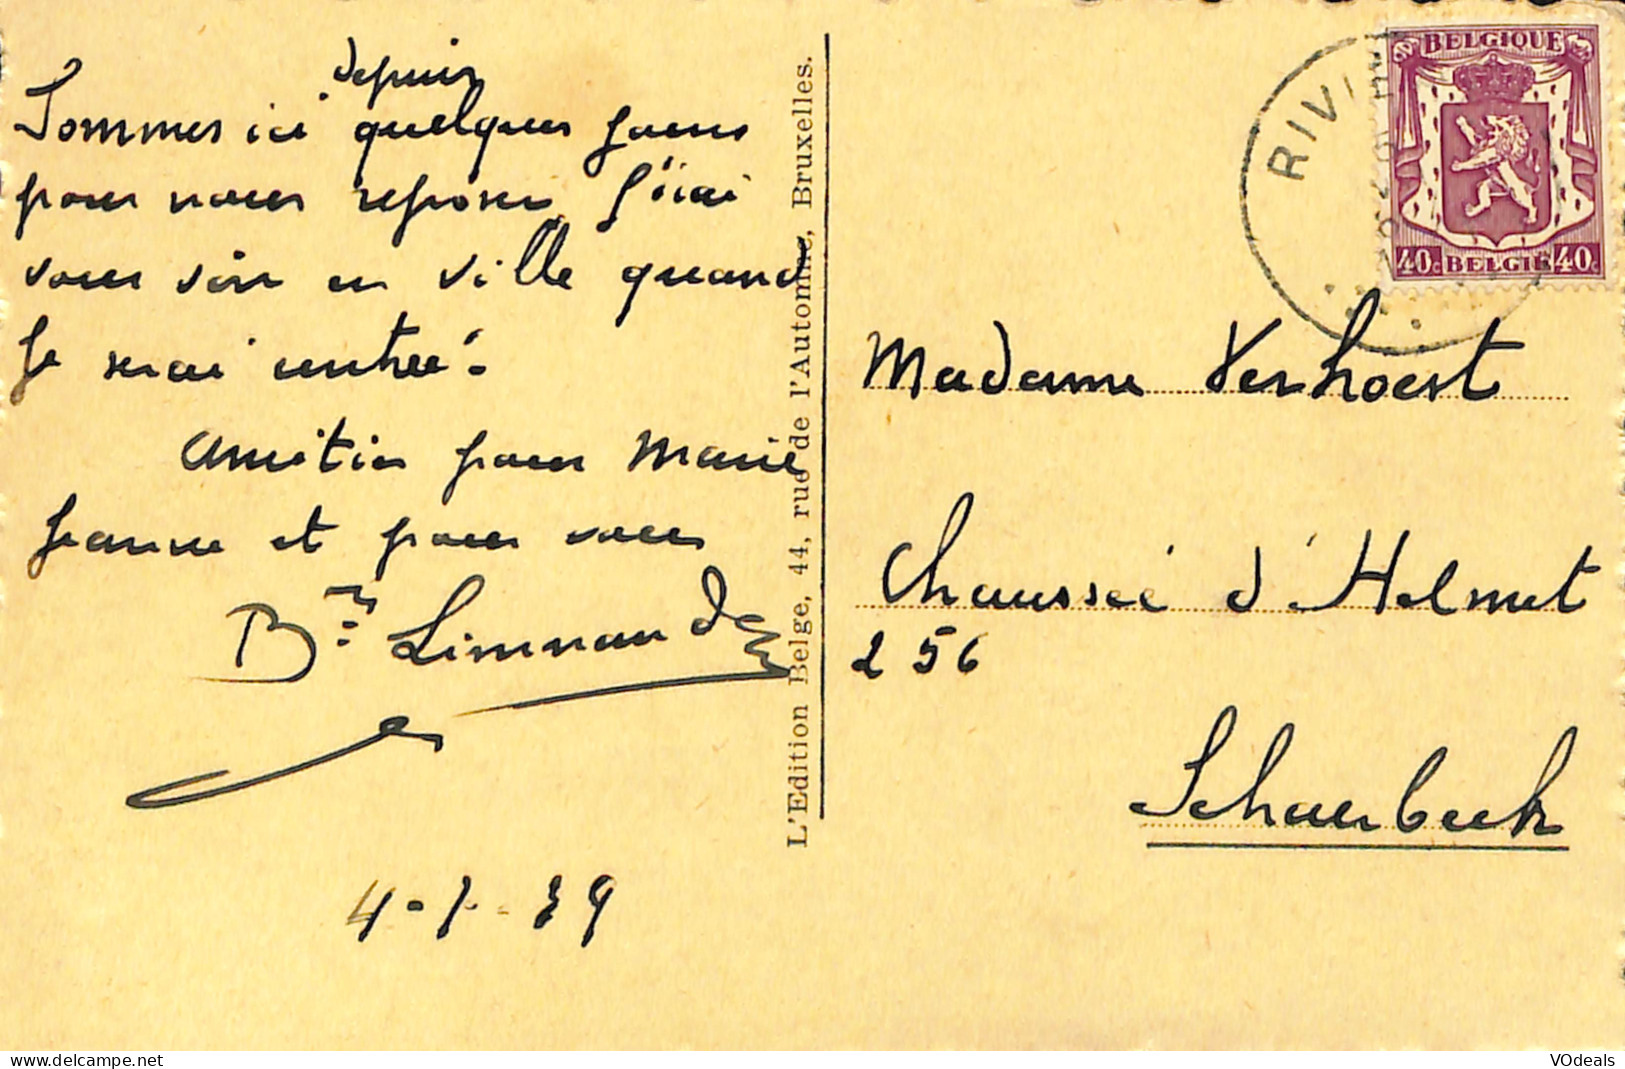 depuis
Sommes ici quelques jours
pour nous reposer j'irai
vous voir en ville quand
je serai rentrée.
Amitiés pour Marie
Jeanne et pour vous
Bne Limnander
4-7-39
L'Edition Belge, 44, rue de l'Automne, Bruxelles.
BELGIQUE
40c BELGIE 40c
RIVI
Madame Verhoest
Chaussée d'Helmet
256
Schaerbeek
delcampe.net
VOdeals